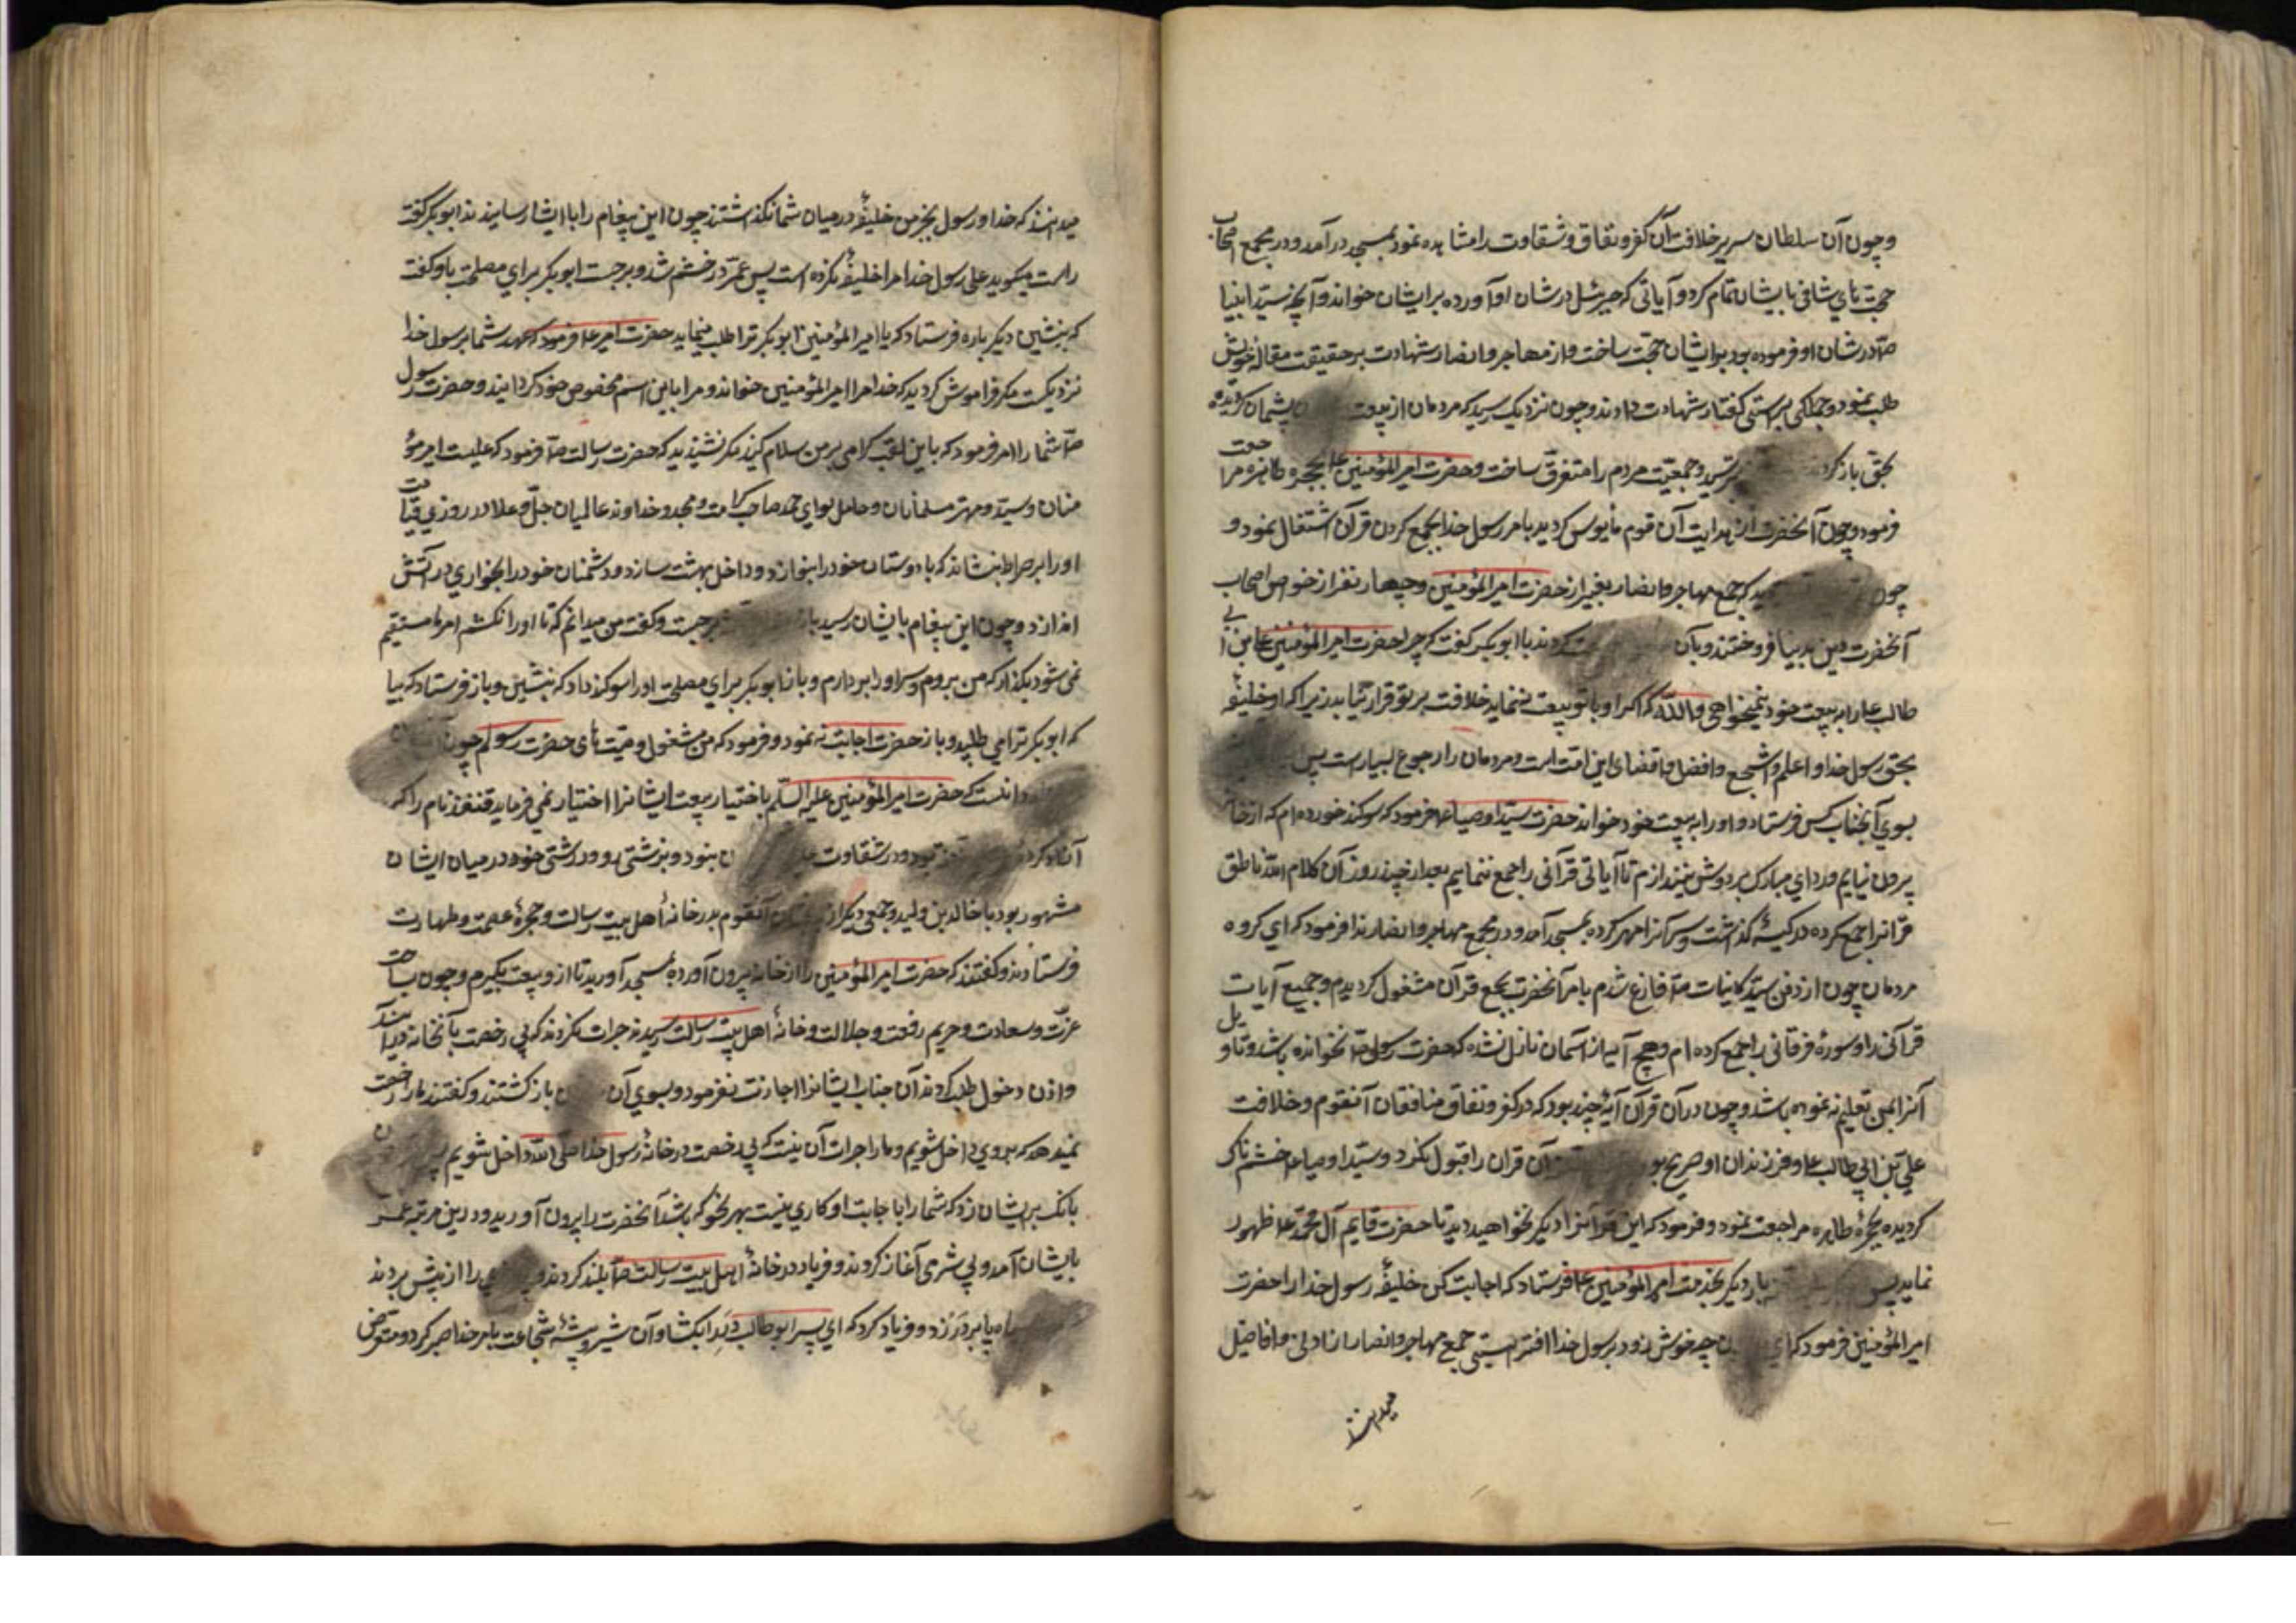 وچون آن سلطان سریر خلافت آن کفر ونفاق وشقاوت را مشاهده نمود بمسجد در آمد ودر مجمع اصحاب
حجت های شافی بایشان تمام کرد و آیاتی که جبرئیل در شان او آورده بر ایشان خواند وآنچه سید انبیا
صَ در شان او فرموده بود بر ایشان حجت ساخت واز مهاجر وانصار شهادت بر حقیقت مقاله خویش
طلب نمود وجملگی براستی گفتار شهادت دادند وچون نزدیک رسید که مردمان از بیعت پشیمان گردیده
بحق باز کردند بترسید وجمعیت مردم را متفرق ساخت وحضرت امیر المؤمنین ع بحجره طاهره مراجعت
فرمود وچون آنحضرت از هدایت آن قوم مایوس گردید بامر رسول خدا بجمع کردن قرآن اشتغال نمود و
چون دید که جمع مهاجر وانصار بغیر از حضرت امیر المؤمنین وچهار نفر از خواص اصحاب
آنحضرت دین بدنیا فروختند وبآن کردند با ابوبکر گفت که چرا حضرت امیر المؤمنین علی بن ابی
طالب ع را به بیعت خود نمیخواهی والله که اگر او با تو بیعت ننماید خلافت بر تو قرار نیابد زیرا که او خلیفه
بحق رسول خدا و اعلم واشجع وافضل واقضای این امت است ومردمان را رجوع بسیار است پس
بسوی آنجناب کس فرستاد و او را به بیعت خود خواند حضرت سید اوصیا ع فرمود که سوکند خورده ام که از خانه
بیرون نیایم وردای مبارک بر دوش نیندازم تا آیاتی قرآنی را جمع ننمایم بعد از چند روز آن کلام الله ناطق
قرآنرا جمع کرده در کیسه گذاشت وسر آنرا مهر کرده بمسجد آمد ودر مجمع مهاجر وانصار ندا فرمود که ای گروه
مردمان چون از دفن سید کاینات صَ فارغ شدم بامر آنحضرت بجمع قرآن مشغول گردیدم وجمیع آیات
قرآنی را وسوره فرقانی را جمع کرده ام وهیچ آیه از آسمان نازل نشده که حضرت رسول صَ نخوانده باشد وتاویل
آنرا بمن تعلیم نه نموده باشد وچون در آن قرآن آیه چند بود که در کفر ونفاق منافقان آنقوم وخلافت
علی بن ابی طالب ع وفرزندان او صریح بود آن قران را قبول نکرد وسید اوصیا ع خشم ناک
گردیده بحجره طاهره مراجعت نمود وفرمود که این قرآنرا دیگر نخواهید دید تا حضرت قایم آل محمد ع ظهور
نماید پس بار دیگر بخدمت امیر المؤمنین ع فرستاد که اجابت کن خلیفه رسول خدا را حضرت
امیر المؤمنین فرمود که ای چه خوش زود برسول خدا افترا بستی جمع مهاجر وانصار از ادنی واقاصی
میدانند
میدانند که خدا ورسول بجز من خلیفه در میان شما نگذاشتند چون این پیغام را با ایشان رسانیدند ابوبکر گفت
راست میگوید علی رسول خدا مرا خلیفه نکرده است پس عمر در خشم شد وبرجست ابوبکر برای مصلحت باو گفت
که بنشین دیگر باره فرستاد که یا امیر المؤمنین ابوبکر ترا طلب مینماید حضرت امیر ع فرمود که عهد شما برسول خدا
نزدیکست مگر فراموش کردید که خدا مرا امیر المؤمنین خواند ومرا باین اسم مخصوص خود گردانید وحضرت رسول
صَ شما را امر فرمود که باین لقب گرامی بر من سلام کنید مگر نشنیدید که حضرت رسالت صَ فرمود که علیست امیر مؤ
منان وسید ومهتر مسلمانان وحامل لوای حمد صاحب کرامت ومجد وخداوند عالمیان جلّ وعلا در روزی قیامت
او را بر صراط بنشاند که با دوستان خود را بنوازد وداخل بهشت سازد ودشمنان خود را بخواری در آتش
اندازد وچون این پیغام بایشان رسید باز برجست وگفت من میدانم که تا او را نکشم امر ما مستقیم
نمی شود بگذار که من بروم وسر او را بردارم وباز ابوبکر برای مصلحت او را سوکند داد که بنشین وباز فرستاد که بیا
که ابوبکر ترا می طلبد وباز حضرت اجابت نه نمود وفرمود که من مشغول وصیت های حضرت رسولم چون
دانست که حضرت امیر المؤمنین علیه السلم باختیار بیعت ایشانرا اختیار نمی فرماید قنفذ نام را که
آزاد کرده بود ودر شقاوت بنود وبزشتی رو ودرشتی خو در میان ایشان
مشهور بود با خالد بن ولید وجمعی دیگر از آنقوم بدر خانه اهل بیت رسالت وحجره عصمت وطهارت
فرستادند وگفتند که حضرت امیر المؤمنین را از خانه بیرون آورده بمسجد آورید تا از و بیعت بگیرم وچون بساحت
عزت وسعادت وحریم رفعت وجلالت وخانه اهل بیت رسالت رسیدند جرات نکردند که بی رخصت بآنخانه در آیند
واذن دخول طلب کردند آن جناب ایشانرا اجازت نفرمود وبسوی آن باز گشتند وگفتند ما را رخصت
نمیدهد که بروی داخل شویم وما را جرات آن نیست که بی رخصت در خانه رسول خدا صلی الله داخل شویم پس
بانک بر ایشان زد که شما را با اجابت او کاری نیست بهر نحو که باشد آنحضرت را بیرون آورید ودرین مرتبه عمر
بایشان آمد وبی شرمی آغاز کردند وفریاد در خانه اهل بیت رسالت صَ بلند کردند را از پیش بردند
پا بر در زد وفریاد کرد که ای پسر ابوطالب در را بکشا وآن شیر بیشه شجاعت بامر خدا صبر کرد ومتعرض